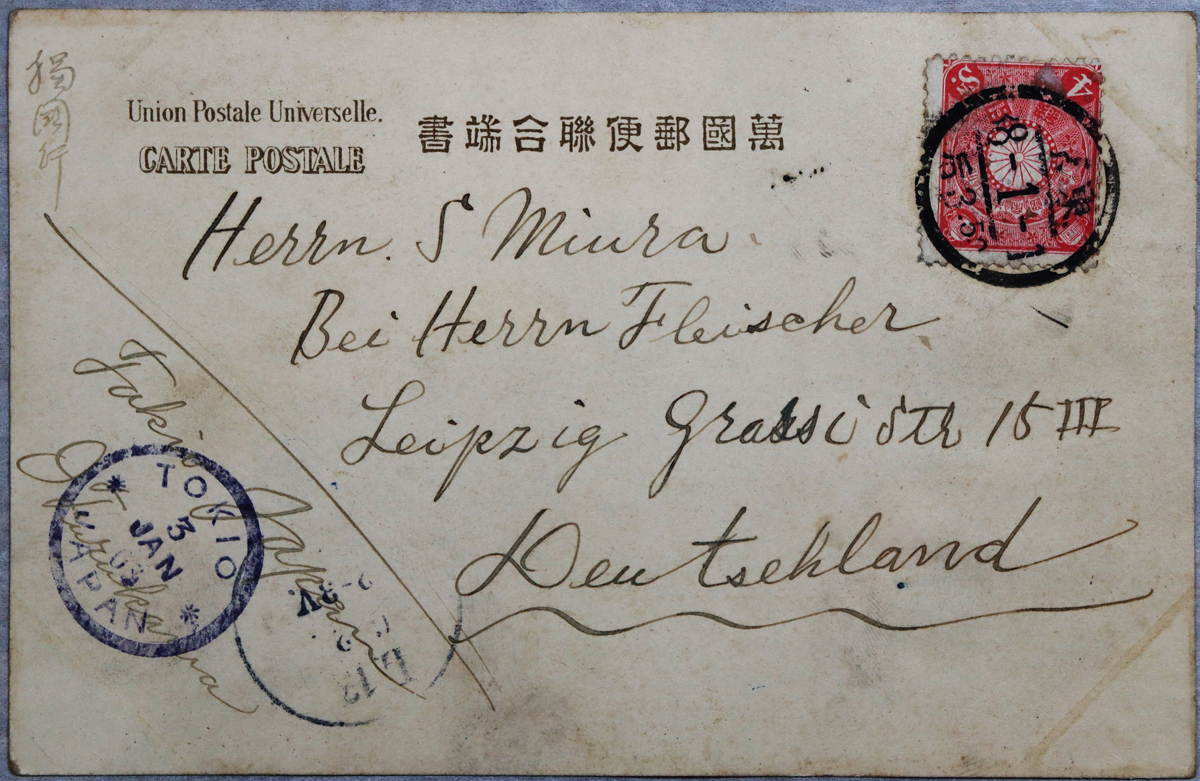 獨國行
Union Postale Universelle.
CARTE POSTALE
書端合聯便郵國萬
4 S.
Herrn. S Miura
Bei Herrn Fleischer
Leipzig Grassi Str 15 III
Deutschland
Tokio
Japan
TOKIO
3
JAN
JAPAN